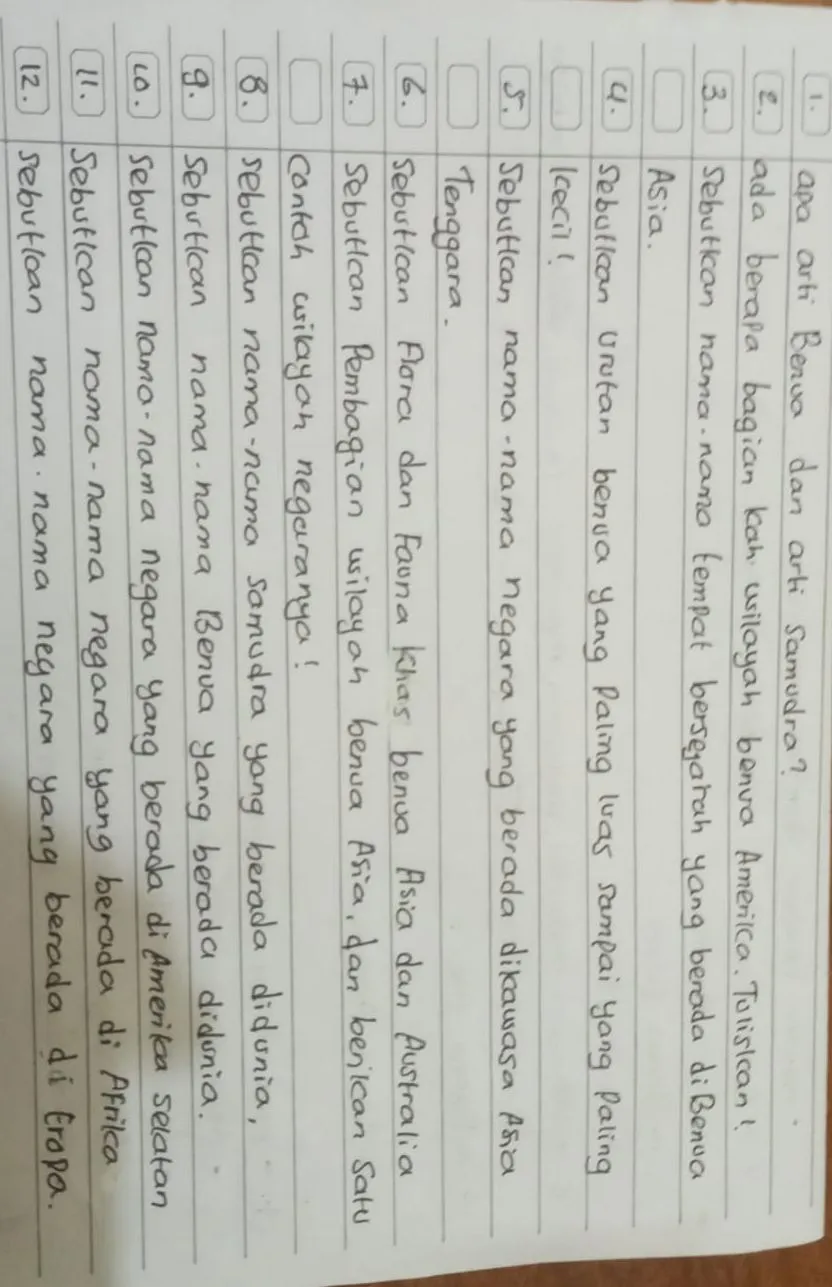 1. apa arti Benua dan arti Samudra?
2. ada berapa bagian kah wilayah benua Amerika. Tuliskan!
3. Sebutkan nama-nama tempat bersejarah yang berada di Benua
Asia.
4. Sebutkan Urutan benua yang Paling luas sampai yang Paling
kecil!
5. Sebutkan nama-nama negara yang berada dikawasa Asia
Tenggara.
6. Sebutkan Flora dan Fauna khas benua Asia dan Australia
7. Sebutkan Pembagian wilayah benua Asia, dan berikan Satu
Contoh wilayah negaranya!
8. Sebutkan nama-nama Samudra yang berada didunia,
9. Sebutkan nama-nama Benua yang berada didunia.
10. Sebutkan nama-nama negara yang berada di Amerika Selatan
11. Sebutkan nama-nama negara yang berada di Afrika
12. Sebutkan nama-nama negara yang berada di Eropa.